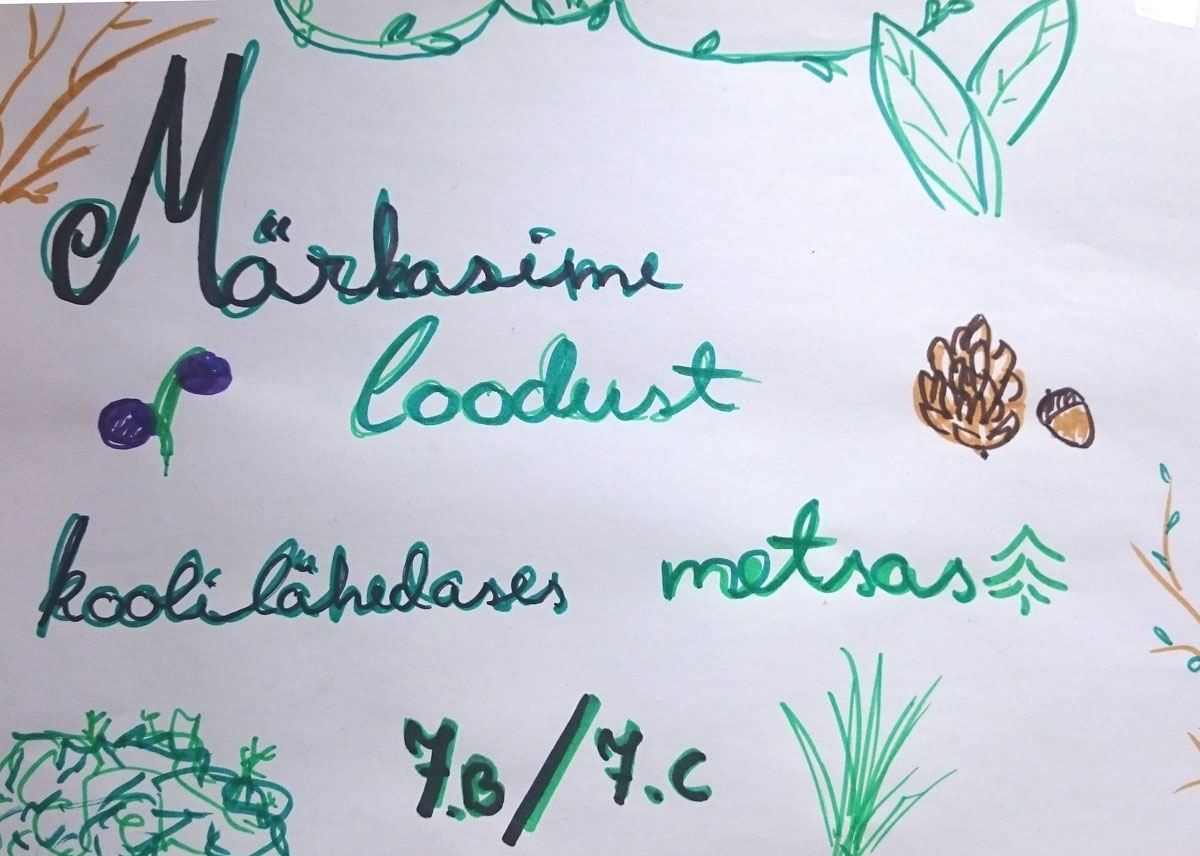 Märkasime
loodust
koolilähedases metsas
7.B/7.C